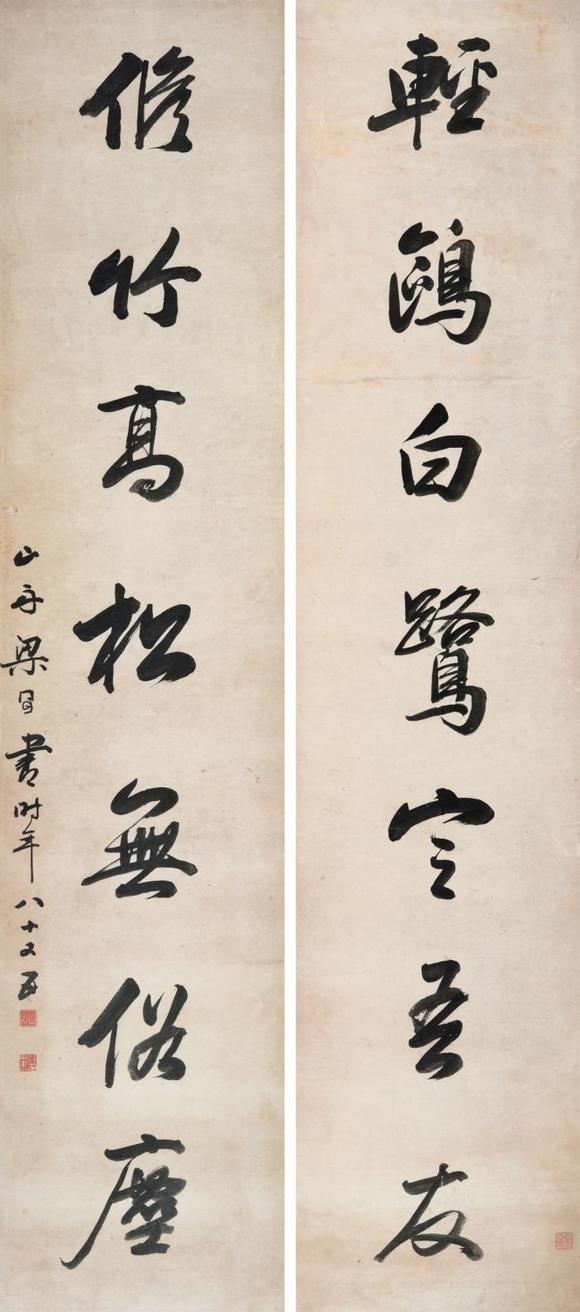 輕鷗白鷺定吾友
脩竹高松無俗塵
山舟梁同書時年八十又五